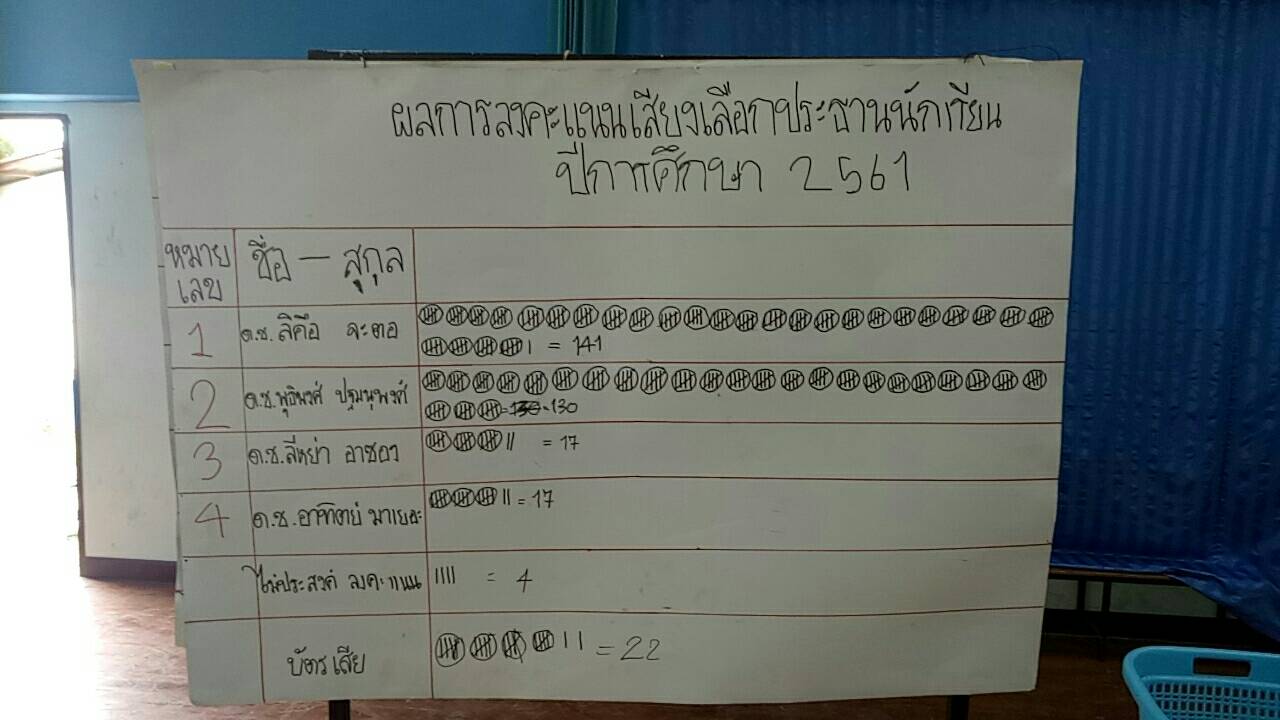 ผลการลงคะแนนเสียงเลือกประธานนักเรียน
ปีการศึกษา 2561
หมายเลข ชื่อ - สกุล
1 ด.ช. ลิคือ จะตอ = 141
2 ด.ช. ปฐมนุพงศ์ = 130
3 ด.ช. ลีหย่า อาซอง = 17
4 ด.ช. อาทิตย์ มาเยอะ = 17
ไม่ประสงค์ ลงคะแนน = 4
บัตรเสีย = 22